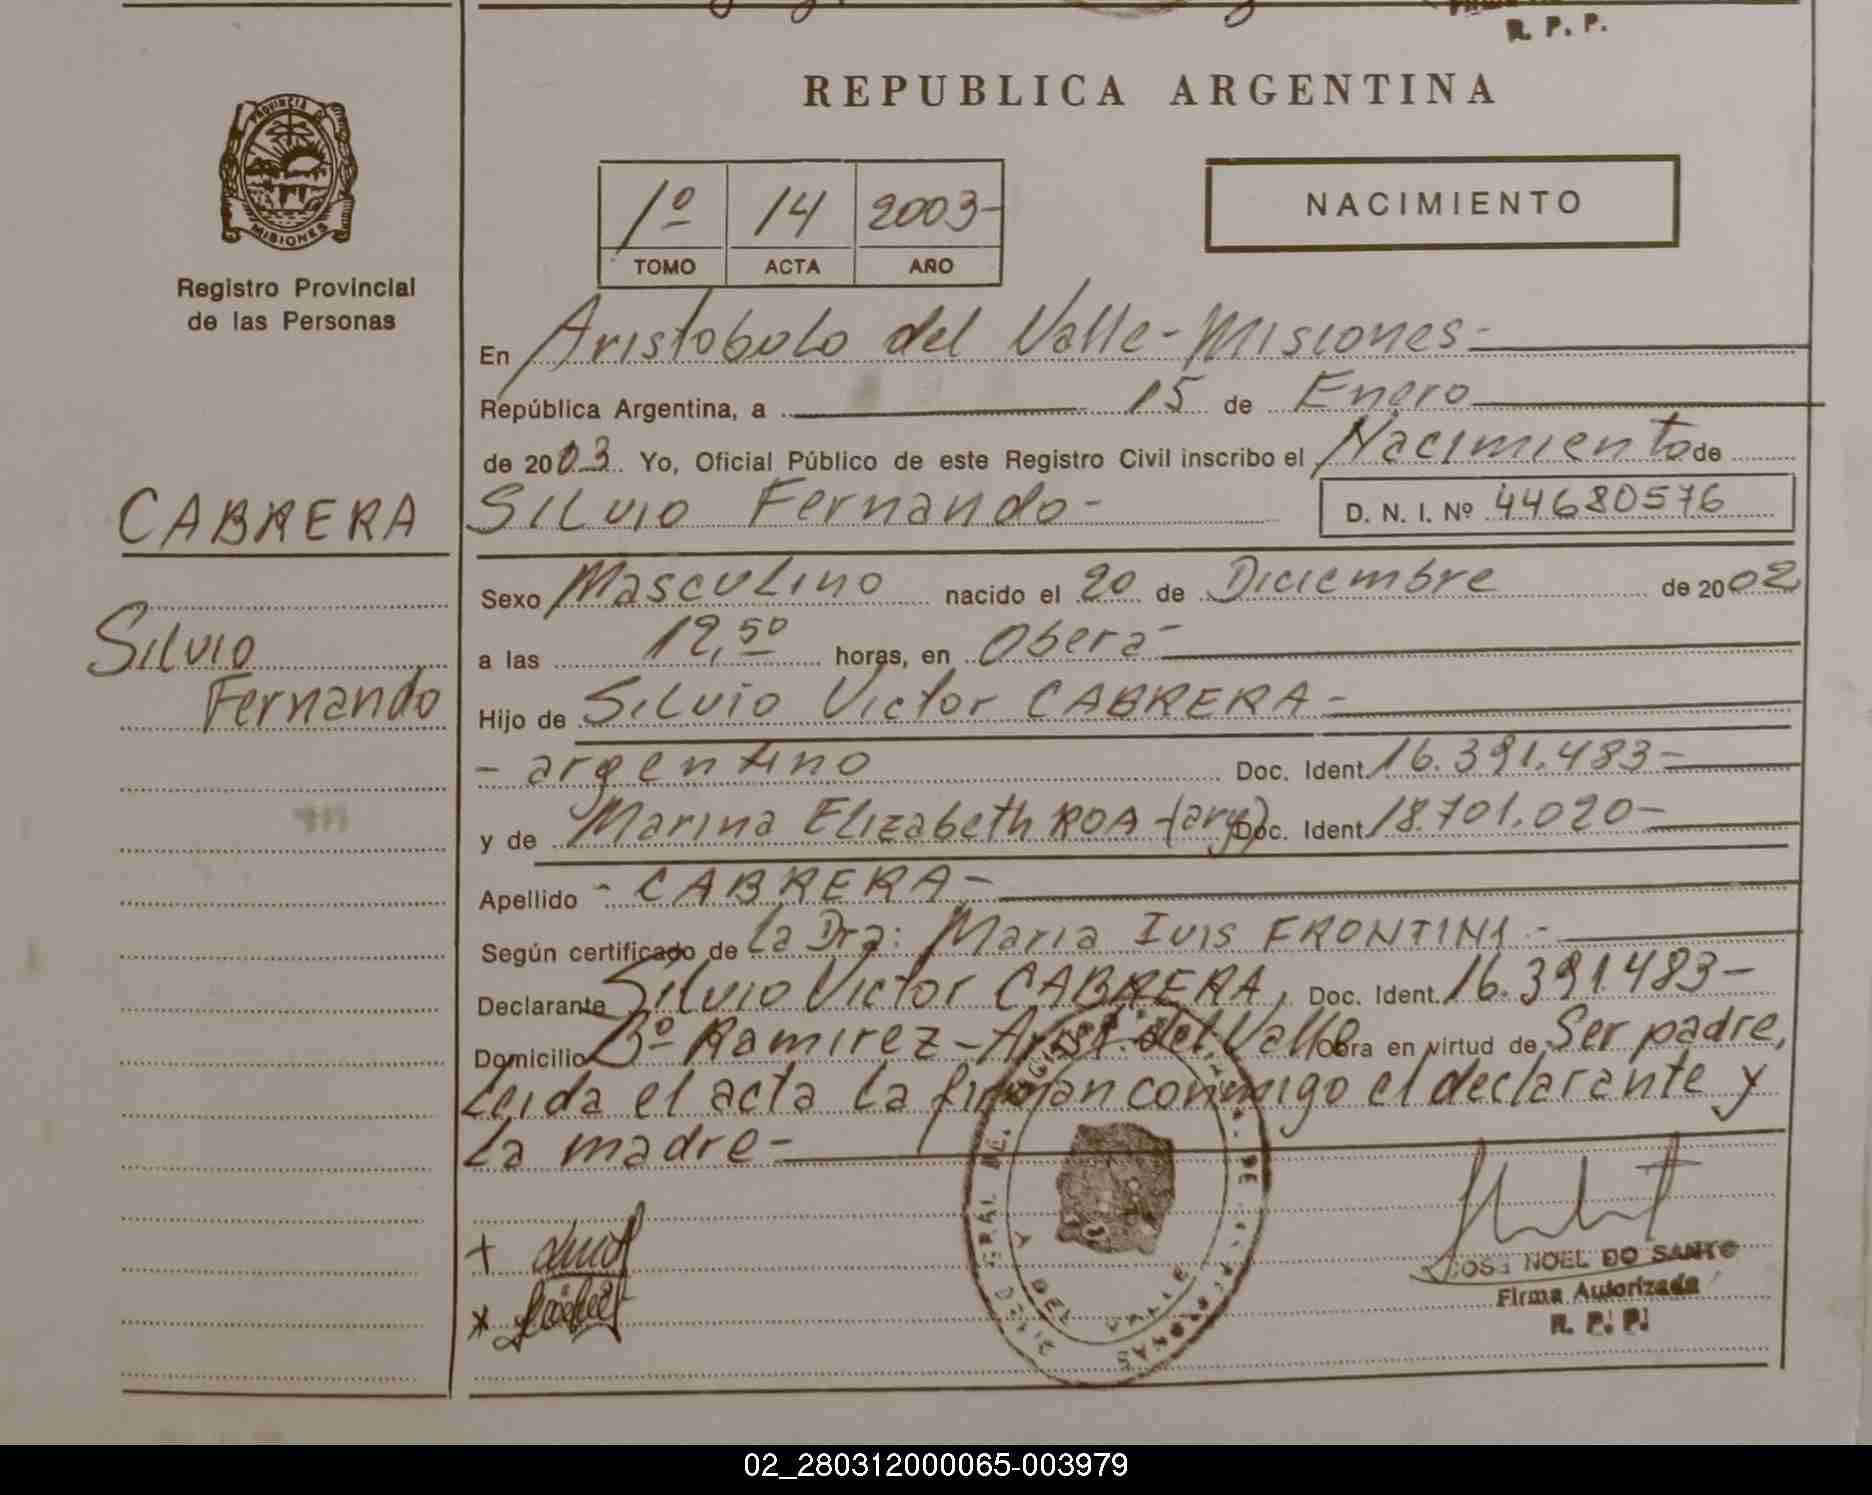 R. P. P.
REPUBLICA ARGENTINA
PROVINCIA DE
MISIONES
Registro Provincial
de las Personas
1º 14 2003-
TOMO ACTA AÑO
NACIMIENTO
En Aristobolo del Valle-Misiones-
República Argentina, a 15 de Enero
de 2003 Yo, Oficial Público de este Registro Civil inscribo el Nacimiento de
CABRERA
Silvio Fernando-
D. N. I. Nº 44680576
Sexo Masculino nacido el 20 de Diciembre de 2002
Silvio
Fernando
a las 12,50 horas, en Oberá-
Hijo de Silvio Victor CABRERA-
- argentino Doc. Ident. 16.391.483-
y de Marina Elizabeth ROA-(arg) Doc. Ident. 18.701.020-
Apellido - CABRERA-
Según certificado de la Dra: Maria Luis FRONTINI-
Declarante Silvio Victor CABRERA, Doc. Ident. 16.391.483-
Domicilio Bº Ramirez-Arist. del Valle Obra en virtud de Ser padre,
Leida el acta la firman conmigo el declarante y
la madre-
JOSE NOEL DO SANTO
Firma Autorizada
R. P. P.
02_280312000065-003979